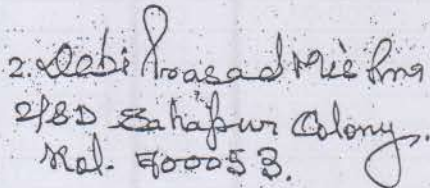 2. Debi Prasad Mishra
2/8D Sahapur Colony.
Kol. 700053.